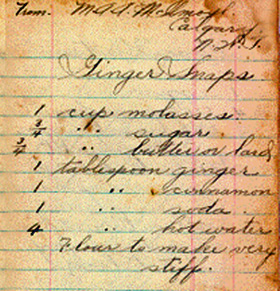 From. Mrs. A. McElmoyl.
Calgary
N.W.T.
Ginger Snaps
1 cup molasses.
3/4 " sugar.
3/4 " butter or lard
1 tablespoon ginger
1 " cinnamon
1 " soda.
4 " hot water
Flour to make very
stiff.